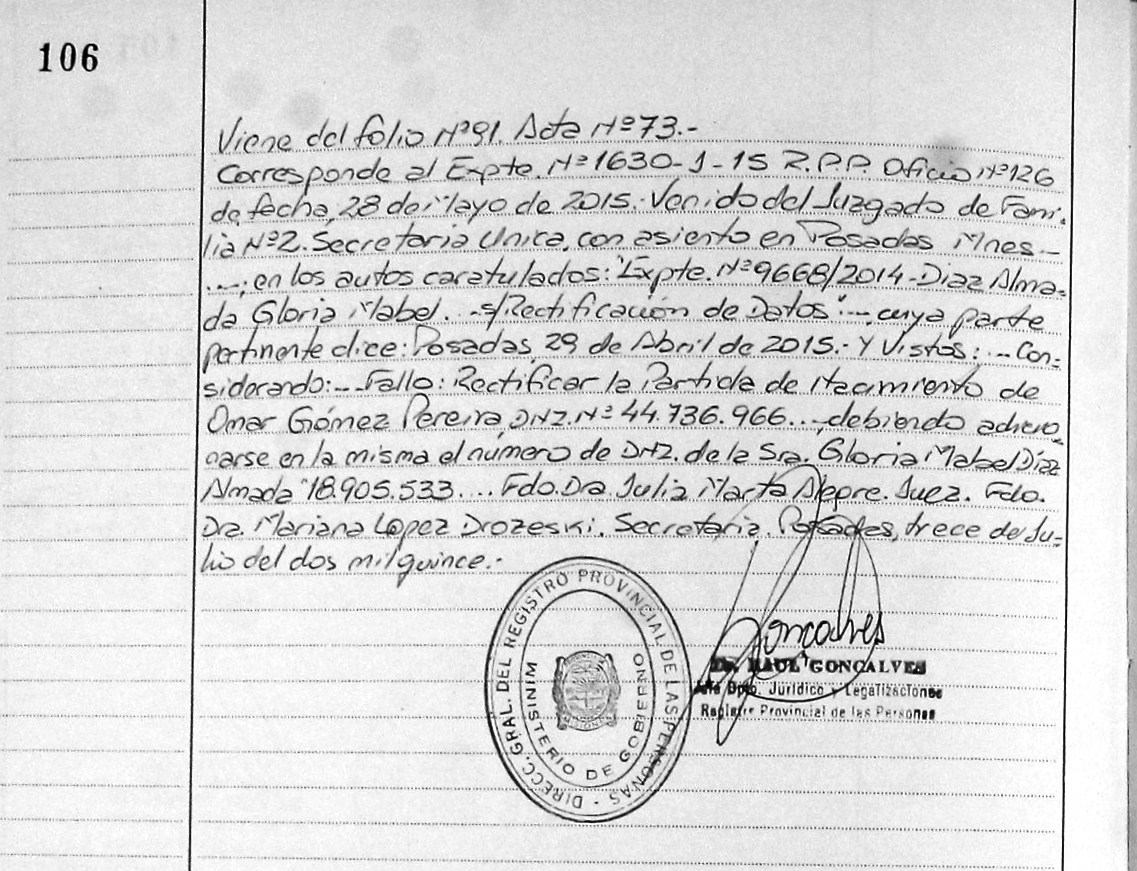 106
Viene del folio Nº91. Acta Nº73.-
Corresponde al Expte. Nº1630-J-15 R.P.P. Oficio Nº126
de fecha, 28 de Mayo de 2015.- Venido del Juzgado de Fami-
lia Nº2. Secretaria Unica, con asiento en Posadas Mnes.-
...; en los autos caratulados: "Expte. Nº9668/2014-Diaz Alma-
da Gloria Mabel. s/Rectificación de Datos"...., cuya parte
pertinente dice: Posadas, 29 de Abril de 2015.- Y Vistos:... Con-
siderando:... Fallo: Rectificar la Partida de Nacimiento de
Omar Gómez Pereira, DNI. Nº 44.736.966..., debiendo
carse en la misma el número de DNI. de la Sra. Gloria Mabel Díaz
Almada "18.905.533... Fdo. Dra. Julia Marta Alegre. Juez. Fdo.
Dra. Mariana Lopez Drozeski. Secretaria. Posadas, trece de Ju-
lio del dos mil quince.-
DIRECC. GRAL. DEL REGISTRO PROVINCIAL DE LAS PERSONAS -
MINISTERIO DE GOBIERNO
MISIONES
Goncalves
Dr. RAUL GONCALVES
Jefe Dpto. Jurídico y Legalizaciones
Registro Provincial de las Personas